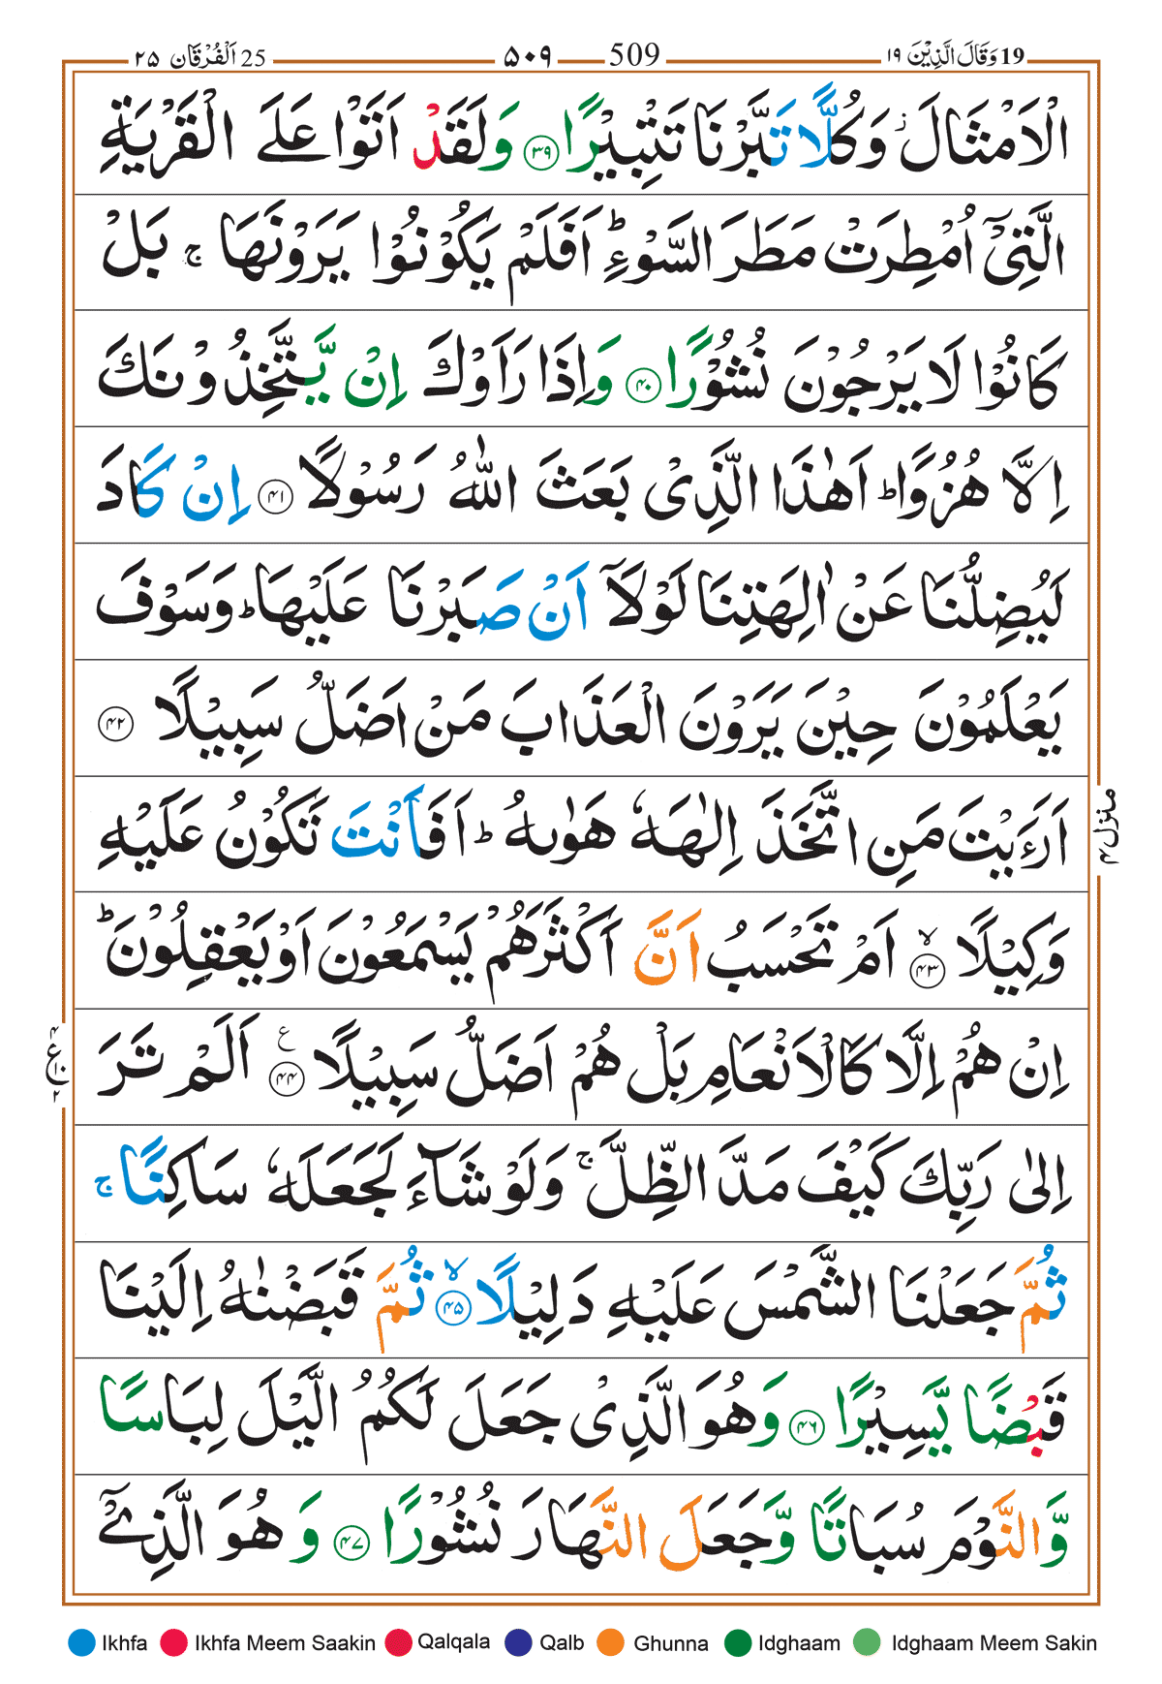 19 وَقَالَ الَّذِيْنَ ١٩ 509 ۵۰۹ 25 اَلْفُرْقَان ۲۵
الْاَمْثَالَ ز وَكُلًّا تَبَّرْنَا تَتْبِيْرًا ۝۳۹ وَلَقَدْ اَتَوْا عَلَى الْقَرْيَةِ
الَّتِيْۤ اُمْطِرَتْ مَطَرَ السَّوْءِ ؕ اَفَلَمْ يَكُوْنُوْا يَرَوْنَهَا ۚ بَلْ
كَانُوْا لَا يَرْجُوْنَ نُشُوْرًا ۝۴۰ وَاِذَا رَاَوْكَ اِنْ يَّتَّخِذُوْنَكَ
اِلَّا هُزُوًا ؕ اَهٰذَا الَّذِيْ بَعَثَ اللّٰهُ رَسُوْلًا ۝۴۱ اِنْ كَادَ
لَيُضِلُّنَا عَنْ اٰلِهَتِنَا لَوْلَاۤ اَنْ صَبَرْنَا عَلَيْهَا ؕ وَسَوْفَ
يَعْلَمُوْنَ حِيْنَ يَرَوْنَ الْعَذَابَ مَنْ اَضَلُّ سَبِيْلًا ۝۴۲
اَرَءَيْتَ مَنِ اتَّخَذَ اِلٰهَهٗ هَوٰىهُ ؕ اَفَاَنْتَ تَكُوْنُ عَلَيْهِ
وَكِيْلًا ۙ۝۴۳ اَمْ تَحْسَبُ اَنَّ اَكْثَرَهُمْ يَسْمَعُوْنَ اَوْ يَعْقِلُوْنَ ؕ
اِنْ هُمْ اِلَّا كَالْاَنْعَامِ بَلْ هُمْ اَضَلُّ سَبِيْلًا ۝۴۴ ع اَلَمْ تَرَ
اِلٰى رَبِّكَ كَيْفَ مَدَّ الظِّلَّ ۚ وَلَوْ شَآءَ لَجَعَلَهٗ سَاكِنًا ۚ
ثُمَّ جَعَلْنَا الشَّمْسَ عَلَيْهِ دَلِيْلًا ۙ۝۴۵ ثُمَّ قَبَضْنٰهُ اِلَيْنَا
قَبْضًا يَّسِيْرًا ۝۴۶ وَهُوَ الَّذِيْ جَعَلَ لَكُمُ الَّيْلَ لِبَاسًا
وَّالنَّوْمَ سُبَاتًا وَّجَعَلَ النَّهَارَ نُشُوْرًا ۝۴۷ وَهُوَ الَّذِيْۤ
منزل ۴
Ikhfa Ikhfa Meem Saakin Qalqala Qalb Ghunna Idghaam Idghaam Meem Sakin